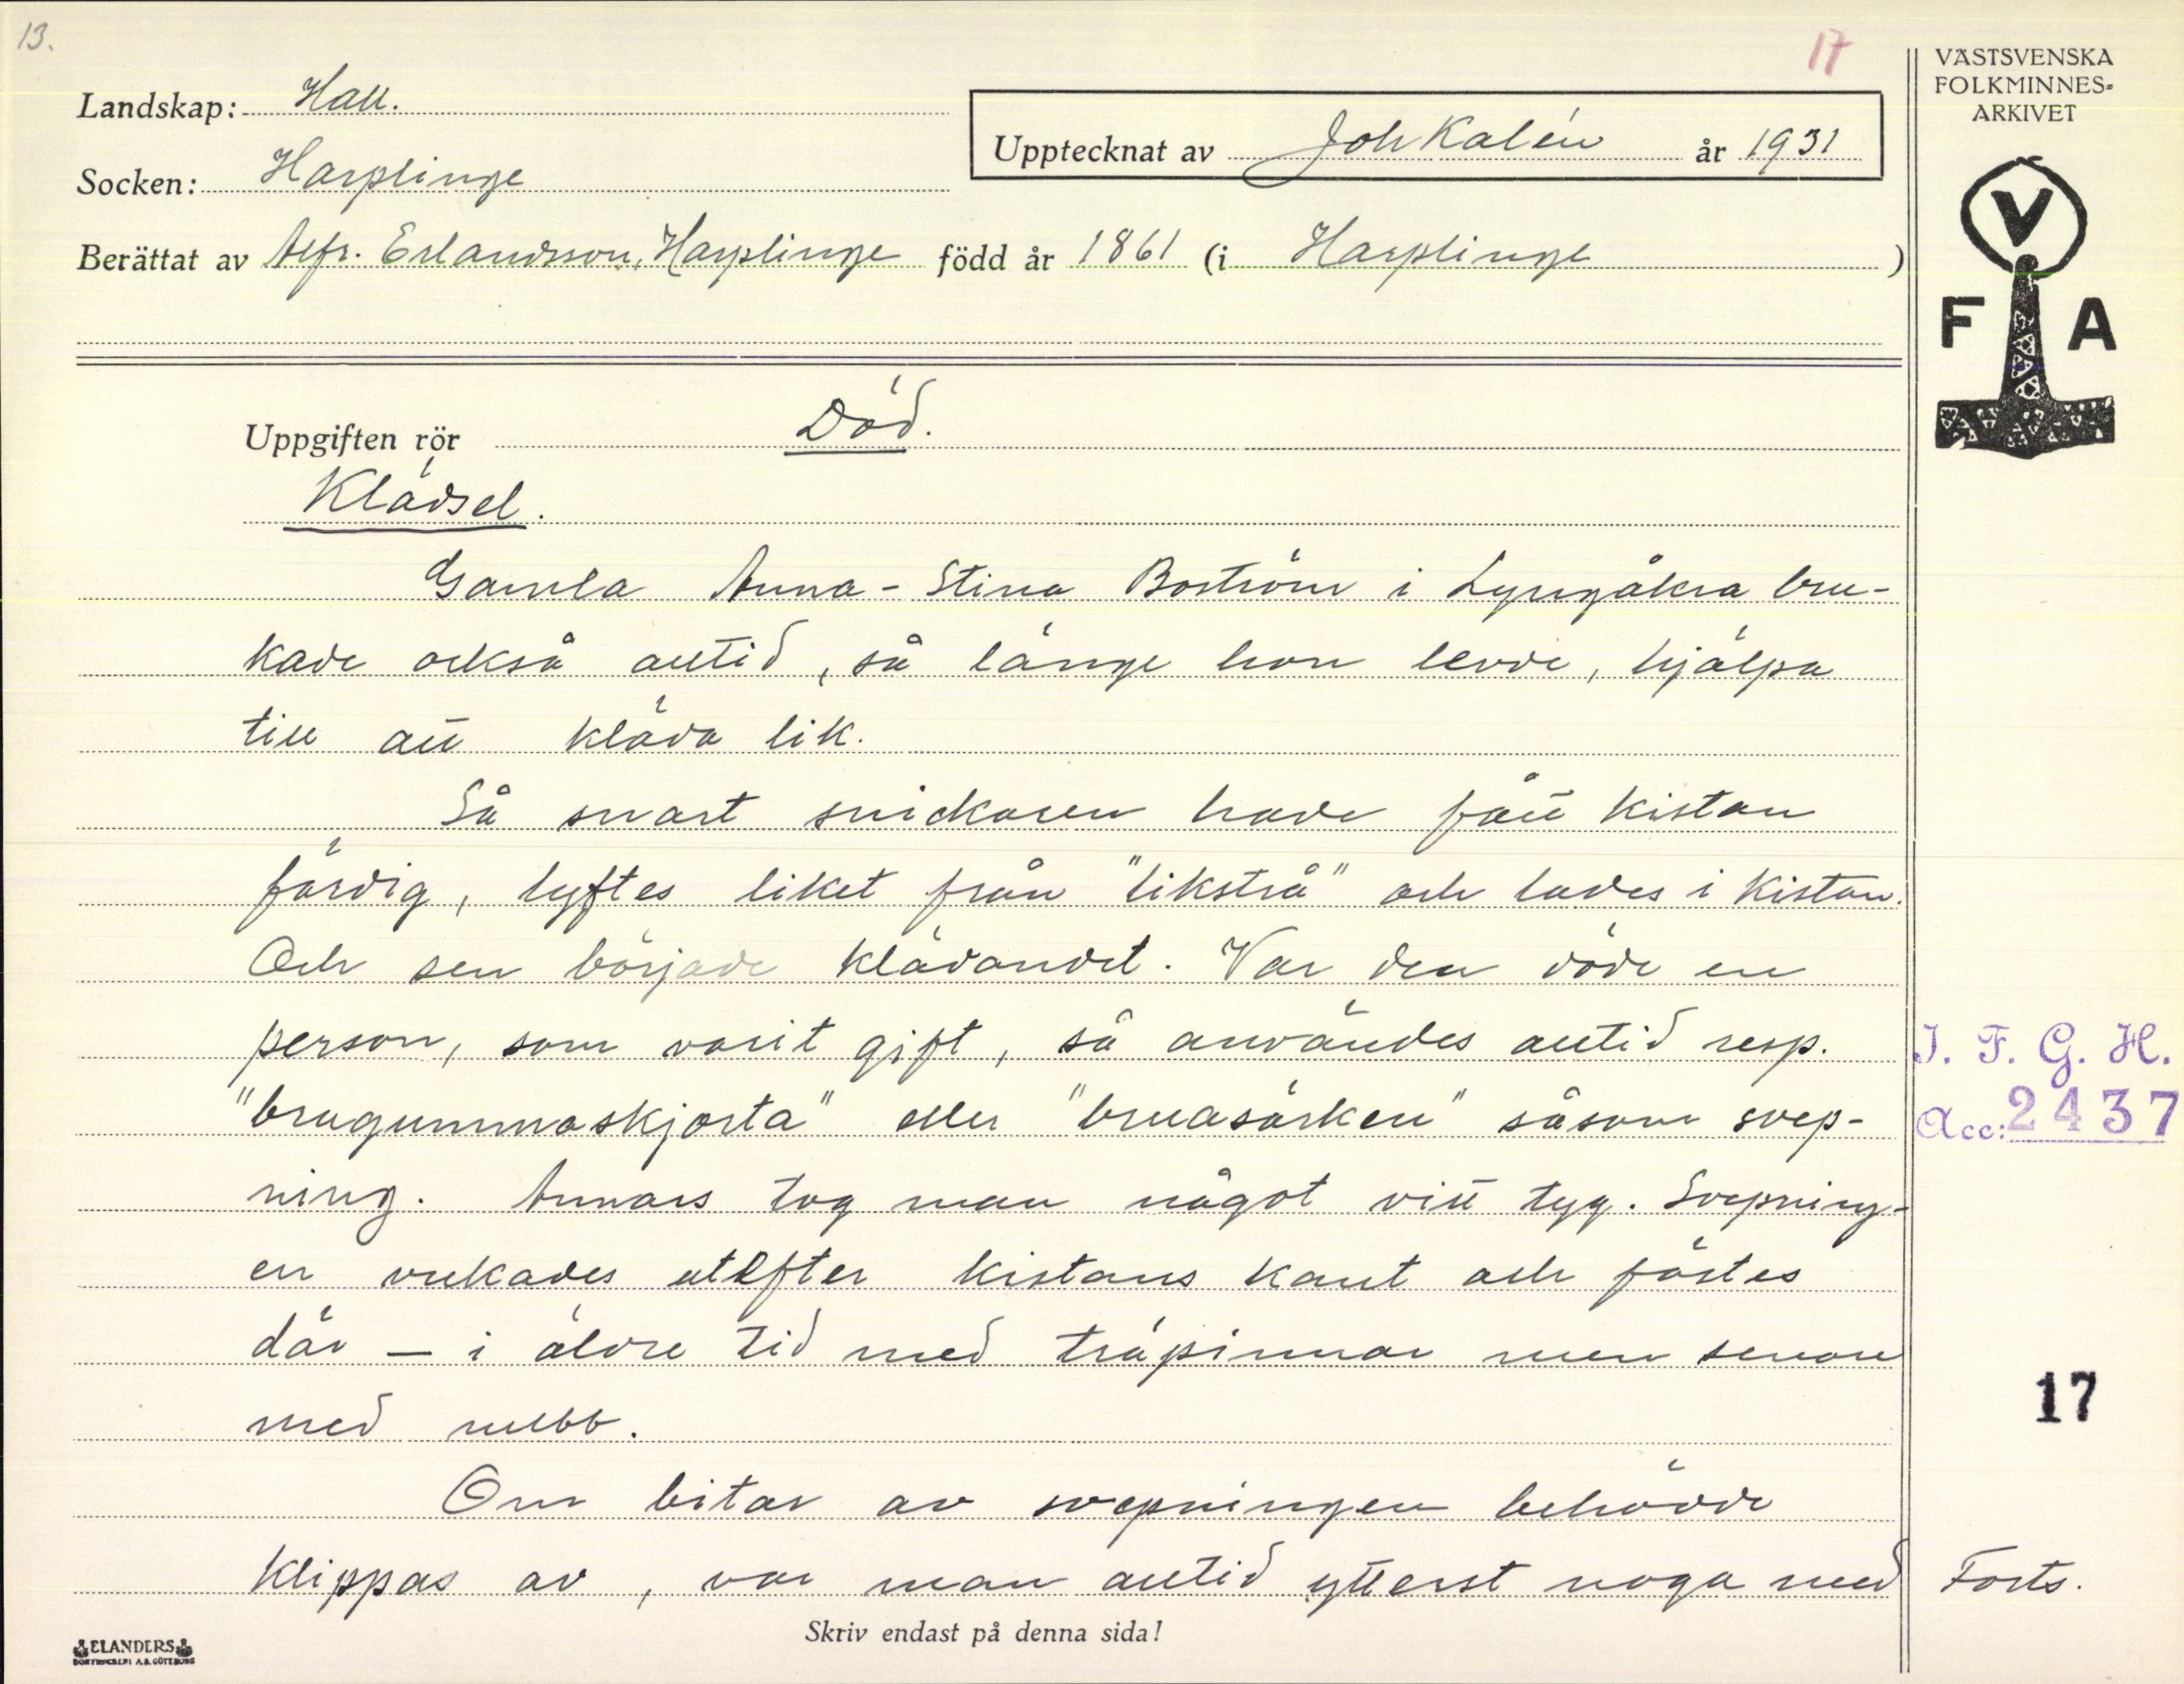 13.
17
Landskap: Hall.
Socken: Harplinge
Upptecknat av Joh Kalén år 1931
Berättat av Alfr. Erlandsson, Harplinge född år 1861 (i Harplinge )
VÄSTSVENSKA
FOLKMINNES-
ARKIVET
V
F A
Uppgiften rör Död.
Klädsel.
Gamla Anna-Stina Boström i Lyngåkra bru-
kade också alltid, så länge hon levde, hjälpa
till att kläda lik.
Så snart snickaren hade fått kistan
färdig, lyftes liket från "likstrå" och lades i kistan.
Och sen började klädandet. Var den döde en
person, som varit gift, så användes alltid resp.
"brugummaskjorta" eller "bruasärken" såsom svep-
ning. Annars tog man något vitt tyg. Svepning-
en veckades utefter kistans kant och fästes
där — i äldre tid med träpinnar men senare
med nubb.
Om bitar av svepningen behövde
klippas av, var man alltid ytterst noga med
I. F. G. H.
Acc: 2437
17
Forts.
Skriv endast på denna sida!
ELANDERS
BOKTRYCKERI A.B. GÖTEBORG